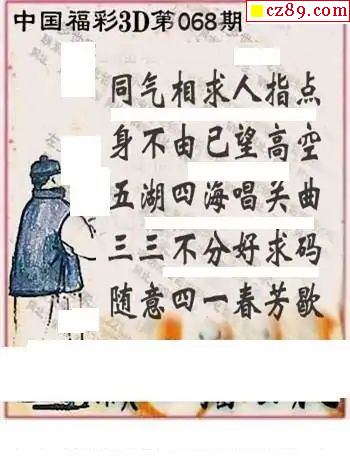 cz89.com
中国福彩3D第068期
同气相求人指点
身不由已望高空
五湖四海唱关曲
三三不分好求码
随意四一春芳歇